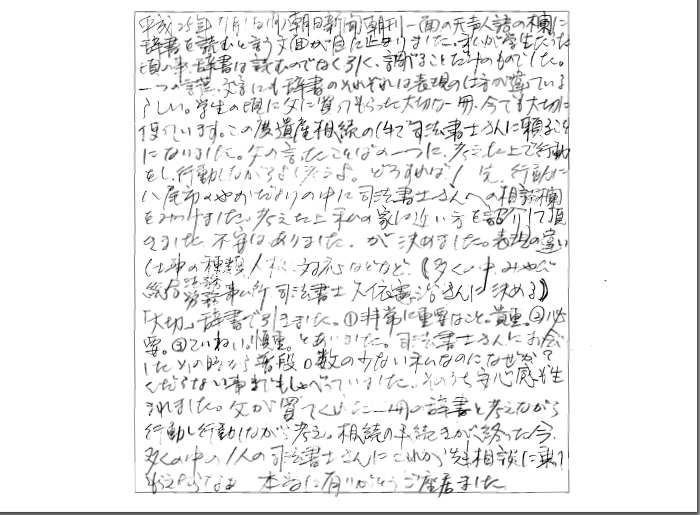 平成25年7月1日(月)朝日新聞朝刊一面の天声人語の欄に
辞書を読むと言う文面が目に止まりました。私が学生だった
頃の事、辞書は読むのでなく引く、調べることだけのものでした。
一つの言葉、文言にも辞書のそれぞれは表現の仕方が違っている
らしい。学生の頃に父に買ってもらった大切な一冊、今でも大切に
使っています。この度遺産相続の件で司法書士さんに頼ること
になりました。父の言ったことばの一つに、考えた上で行動
をし、行動しながら考えよ。どうすれば! 先、行動に
八尾市の中に司法書士さんへの相談欄
をみつけました。考えた上私の家に近い方を紹介して頂
きました 不安はありました、が決めました。表現の違い
仕事の種類 人 対応などなど 《多くの中
総合法務事務所 司法書士 久依 さんに決める》
「大切」辞書で引きました。①非常に重要なこと。貴重。②必
要。③ていねい。慎重。とありました。司法書士さんにお会い
した その時から普段口数の少ない私なのになぜか?
くだらない事までもしゃべっていました。そのうち安心感も生
まれました。父が買てくれた一冊の辞書と考えながら
行動し行動しながら考え。相続の手続きが終った今、
多くの中の1人の司法書士さんにこれから先相談に乗って
もらえたらなぁ 本当に有りがとうご座居ました